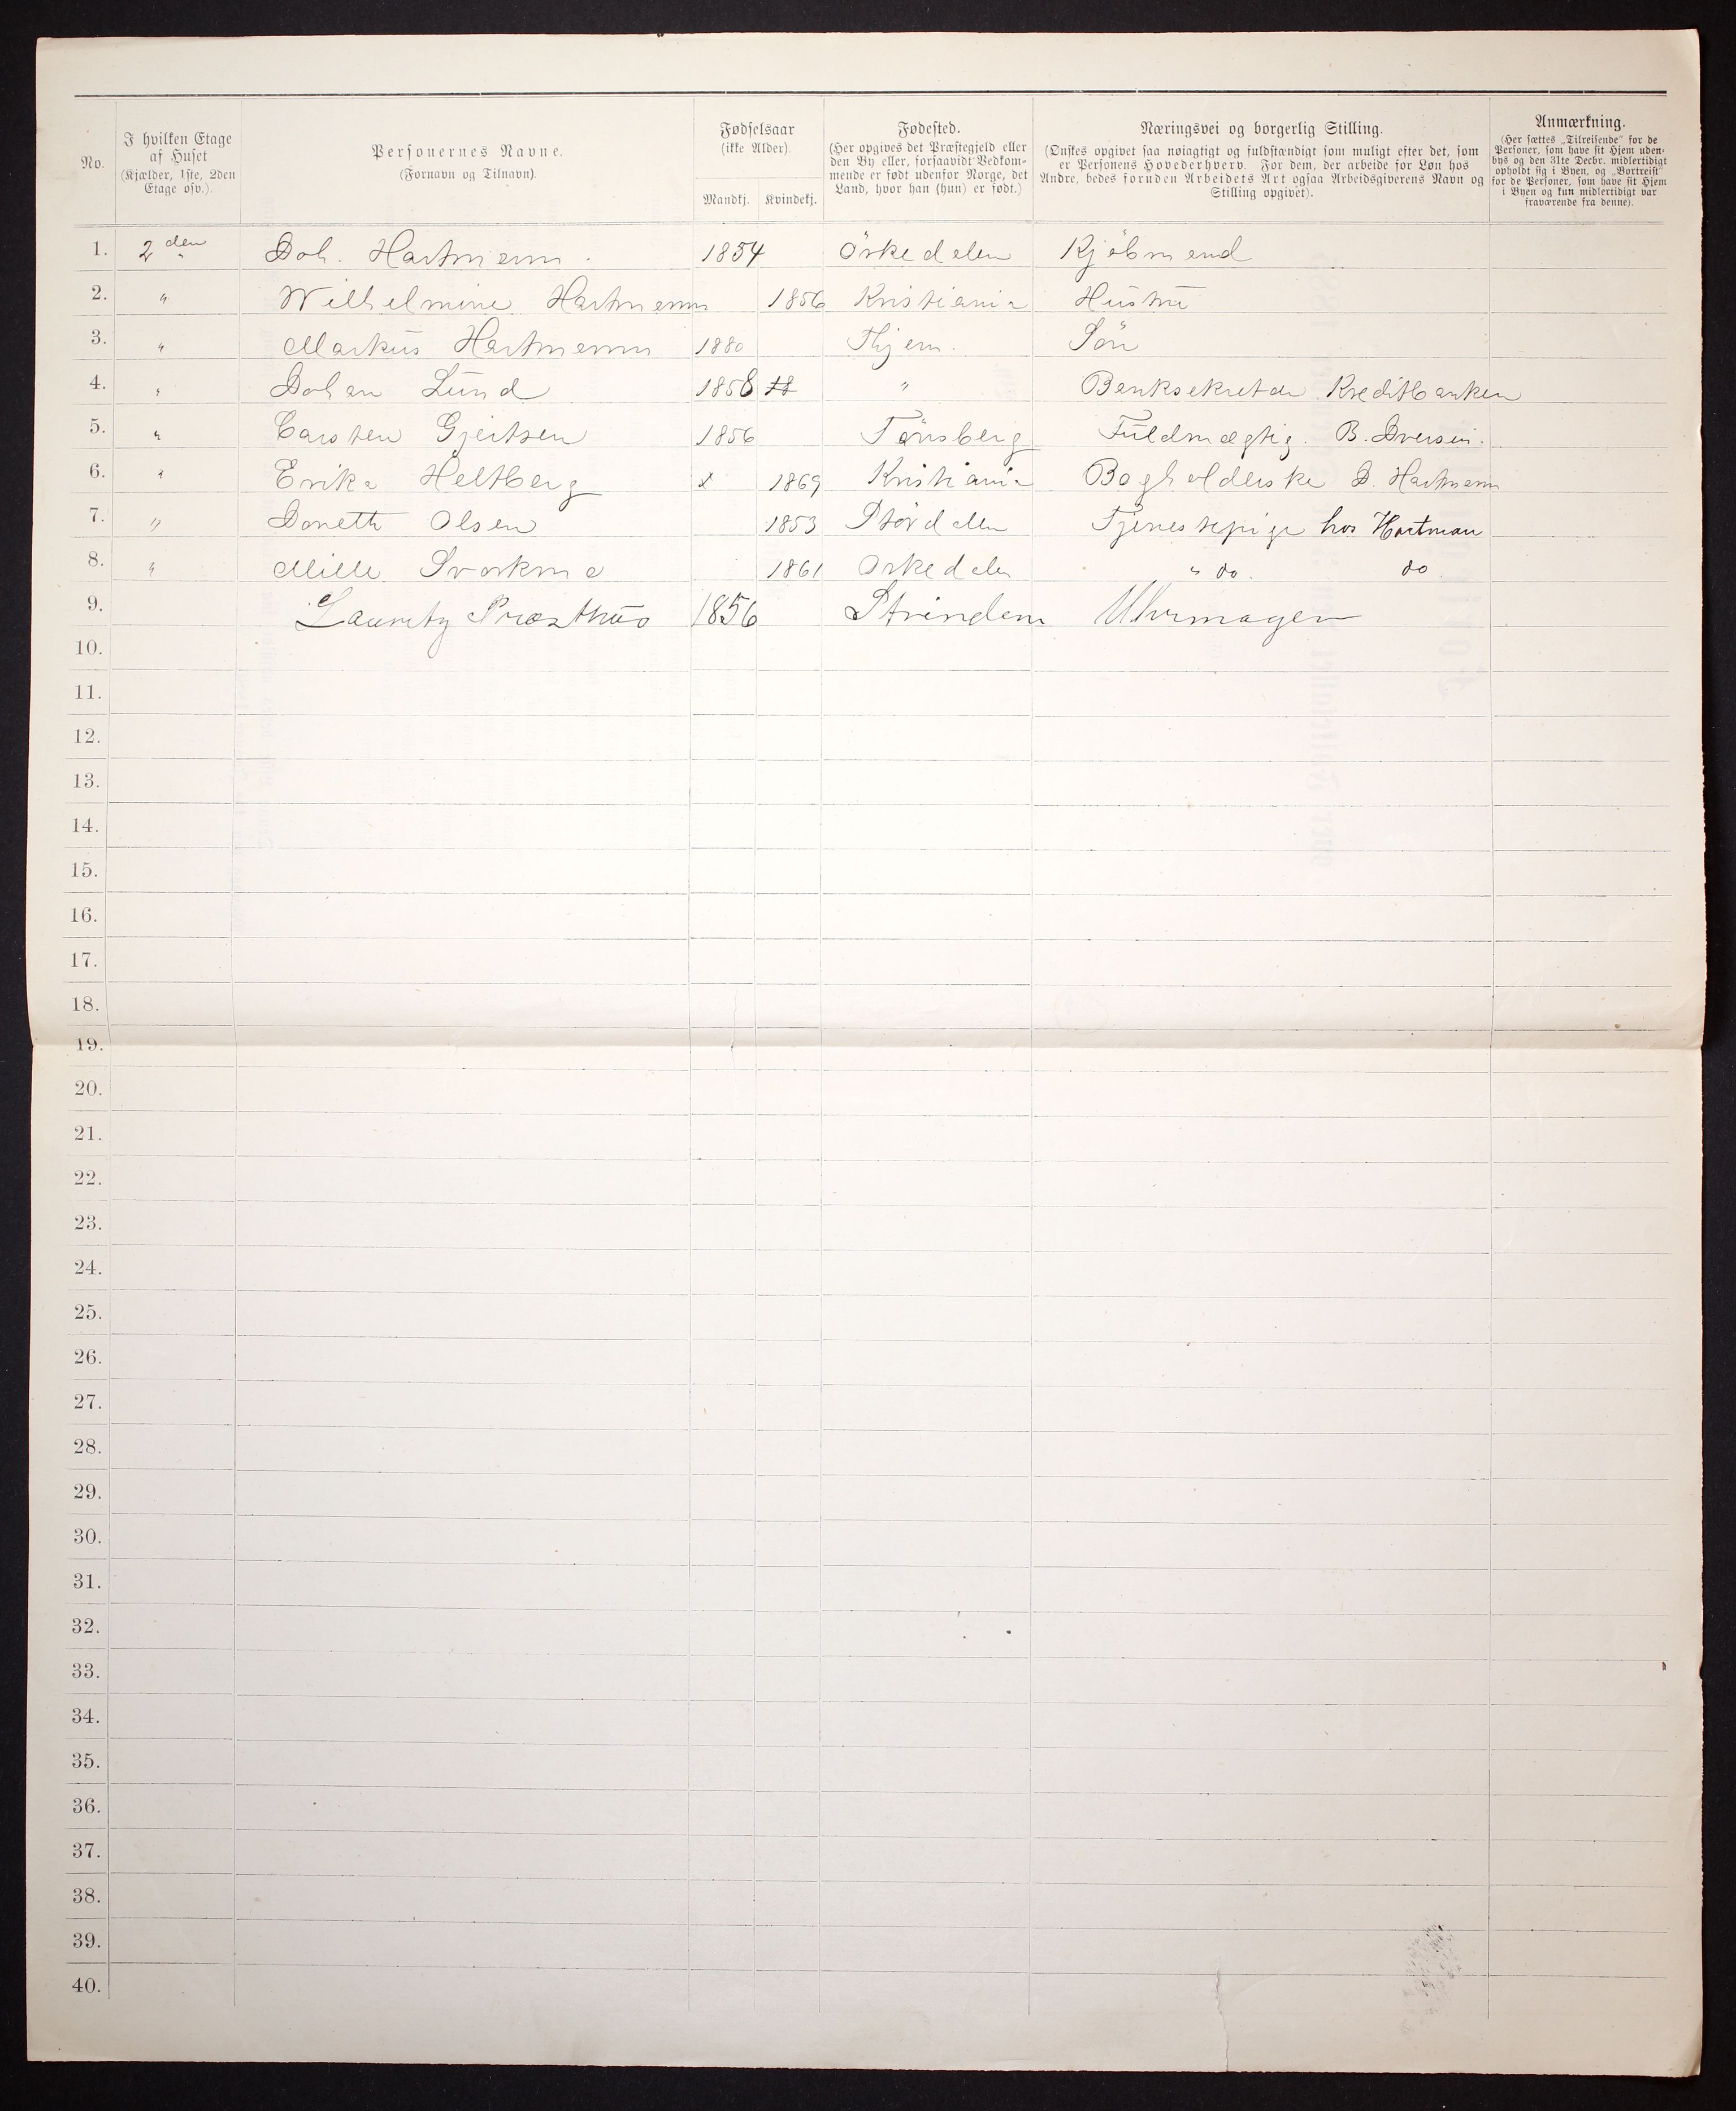 No.
I hvilken Etage
af Huset
(Kjælder, 1ste, 2den
Etage osv.).
Personernes Navne.
(Fornavn og Tilnavn).
Fødselsaar
(ikke Alder).
Mandkj. Kvindekj.
Fødested.
(Her opgives det Præstegjeld eller
den By eller, forsaavidt Vedkom-
mende er født udenfor Norge, det
Land, hvor han (hun) er født.)
Næringsvei og borgerlig Stilling.
(Ønskes opgivet saa nøiagtigt og fuldstændigt som muligt efter det, som
er Personens Hovederhverv. For dem, der arbeide for Løn hos
Andre, bedes foruden Arbeidets Art ogsaa Arbeidsgiverens Navn og
Stilling opgivet).
Anmærkning.
(Her sættes „Tilreisende" for de
Personer, som have sit Hjem uden-
bys og den 31te Decbr. midlertidigt
opholdt sig i Byen, og „Bortreist"
for de Personer, som have sit Hjem
i Byen og kun midlertidigt var
fraværende fra denne).
1. 2den Joh. Hartmann. 1854 Örkedalen Kjöbmand
2. " Wilhelmine Hartmann 1856 Kristiania Hustru
3. " Markus Hartmann 1880 Thjem. Sön
4. " Johan Lund 1858 " Banksekretær Kreditbanken
5. " Carsten Gjertsen 1856 Tönsberg Fuldmægtig. B. Iversen.
6. " Erika Heltberg x 1869 Kristiania Bogholderske J. Hartmann
7. " Jonette Olsen 1853 Stördalen Tjenestepige hos Hartman
8. " Mille Svorkmo 1861 Orkedalen " do. do
9. Lauritz Præsthus 1856 Strinden Uhrmager
10.
11.
12.
13.
14.
15.
16.
17.
18.
19.
20.
21.
22.
23.
24.
25.
26.
27.
28.
29.
30.
31.
32.
33.
34.
35.
36.
37.
38.
39.
40.